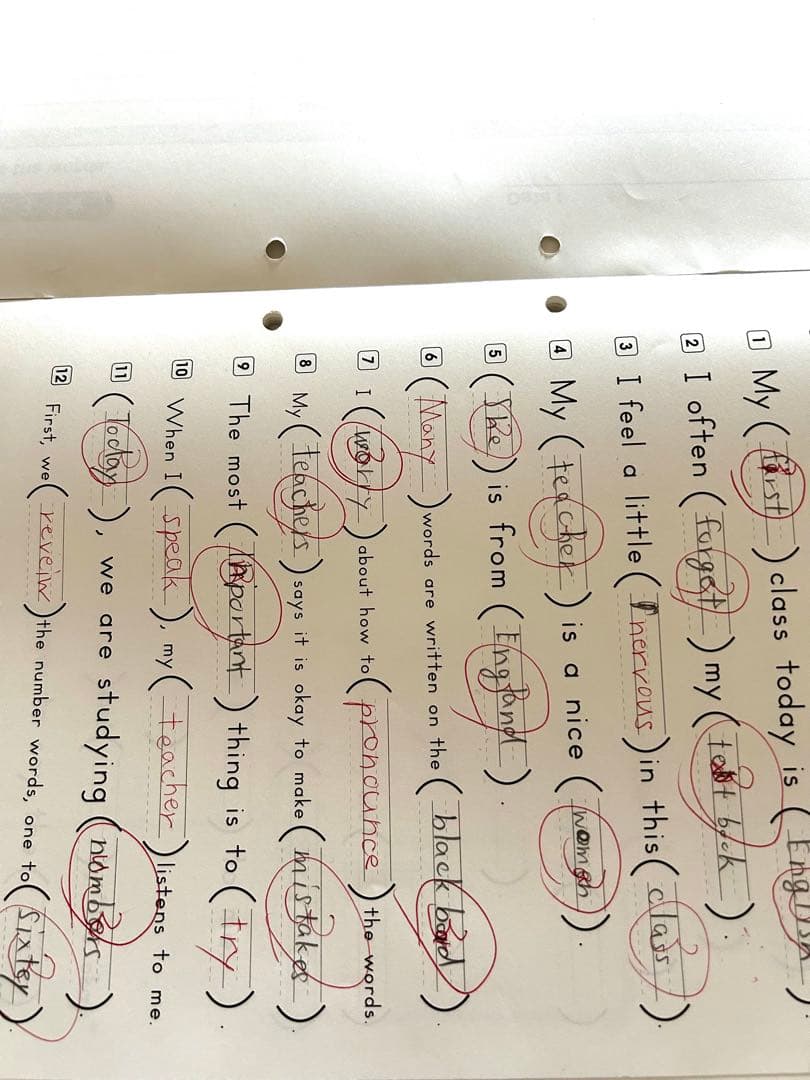 1 My (first) class today is (English).
2 I often (forget) my (textbook).
3 I feel a little (nervous) in this (class).
4 My (teacher) is a nice (woman).
5 (She) is from (England).
6 (Many) words are written on the (black board).
7 I (worry) about how to (pronounce) the words.
8 My (teachers) says it is okay to make (mistakes).
9 The most (inportant) thing is to (try).
10 When I (speak), my (teacher) listens to me.
11 (Today), we are studying (nombers).
12 First, we (reveiw) the number words, one to (sixter).